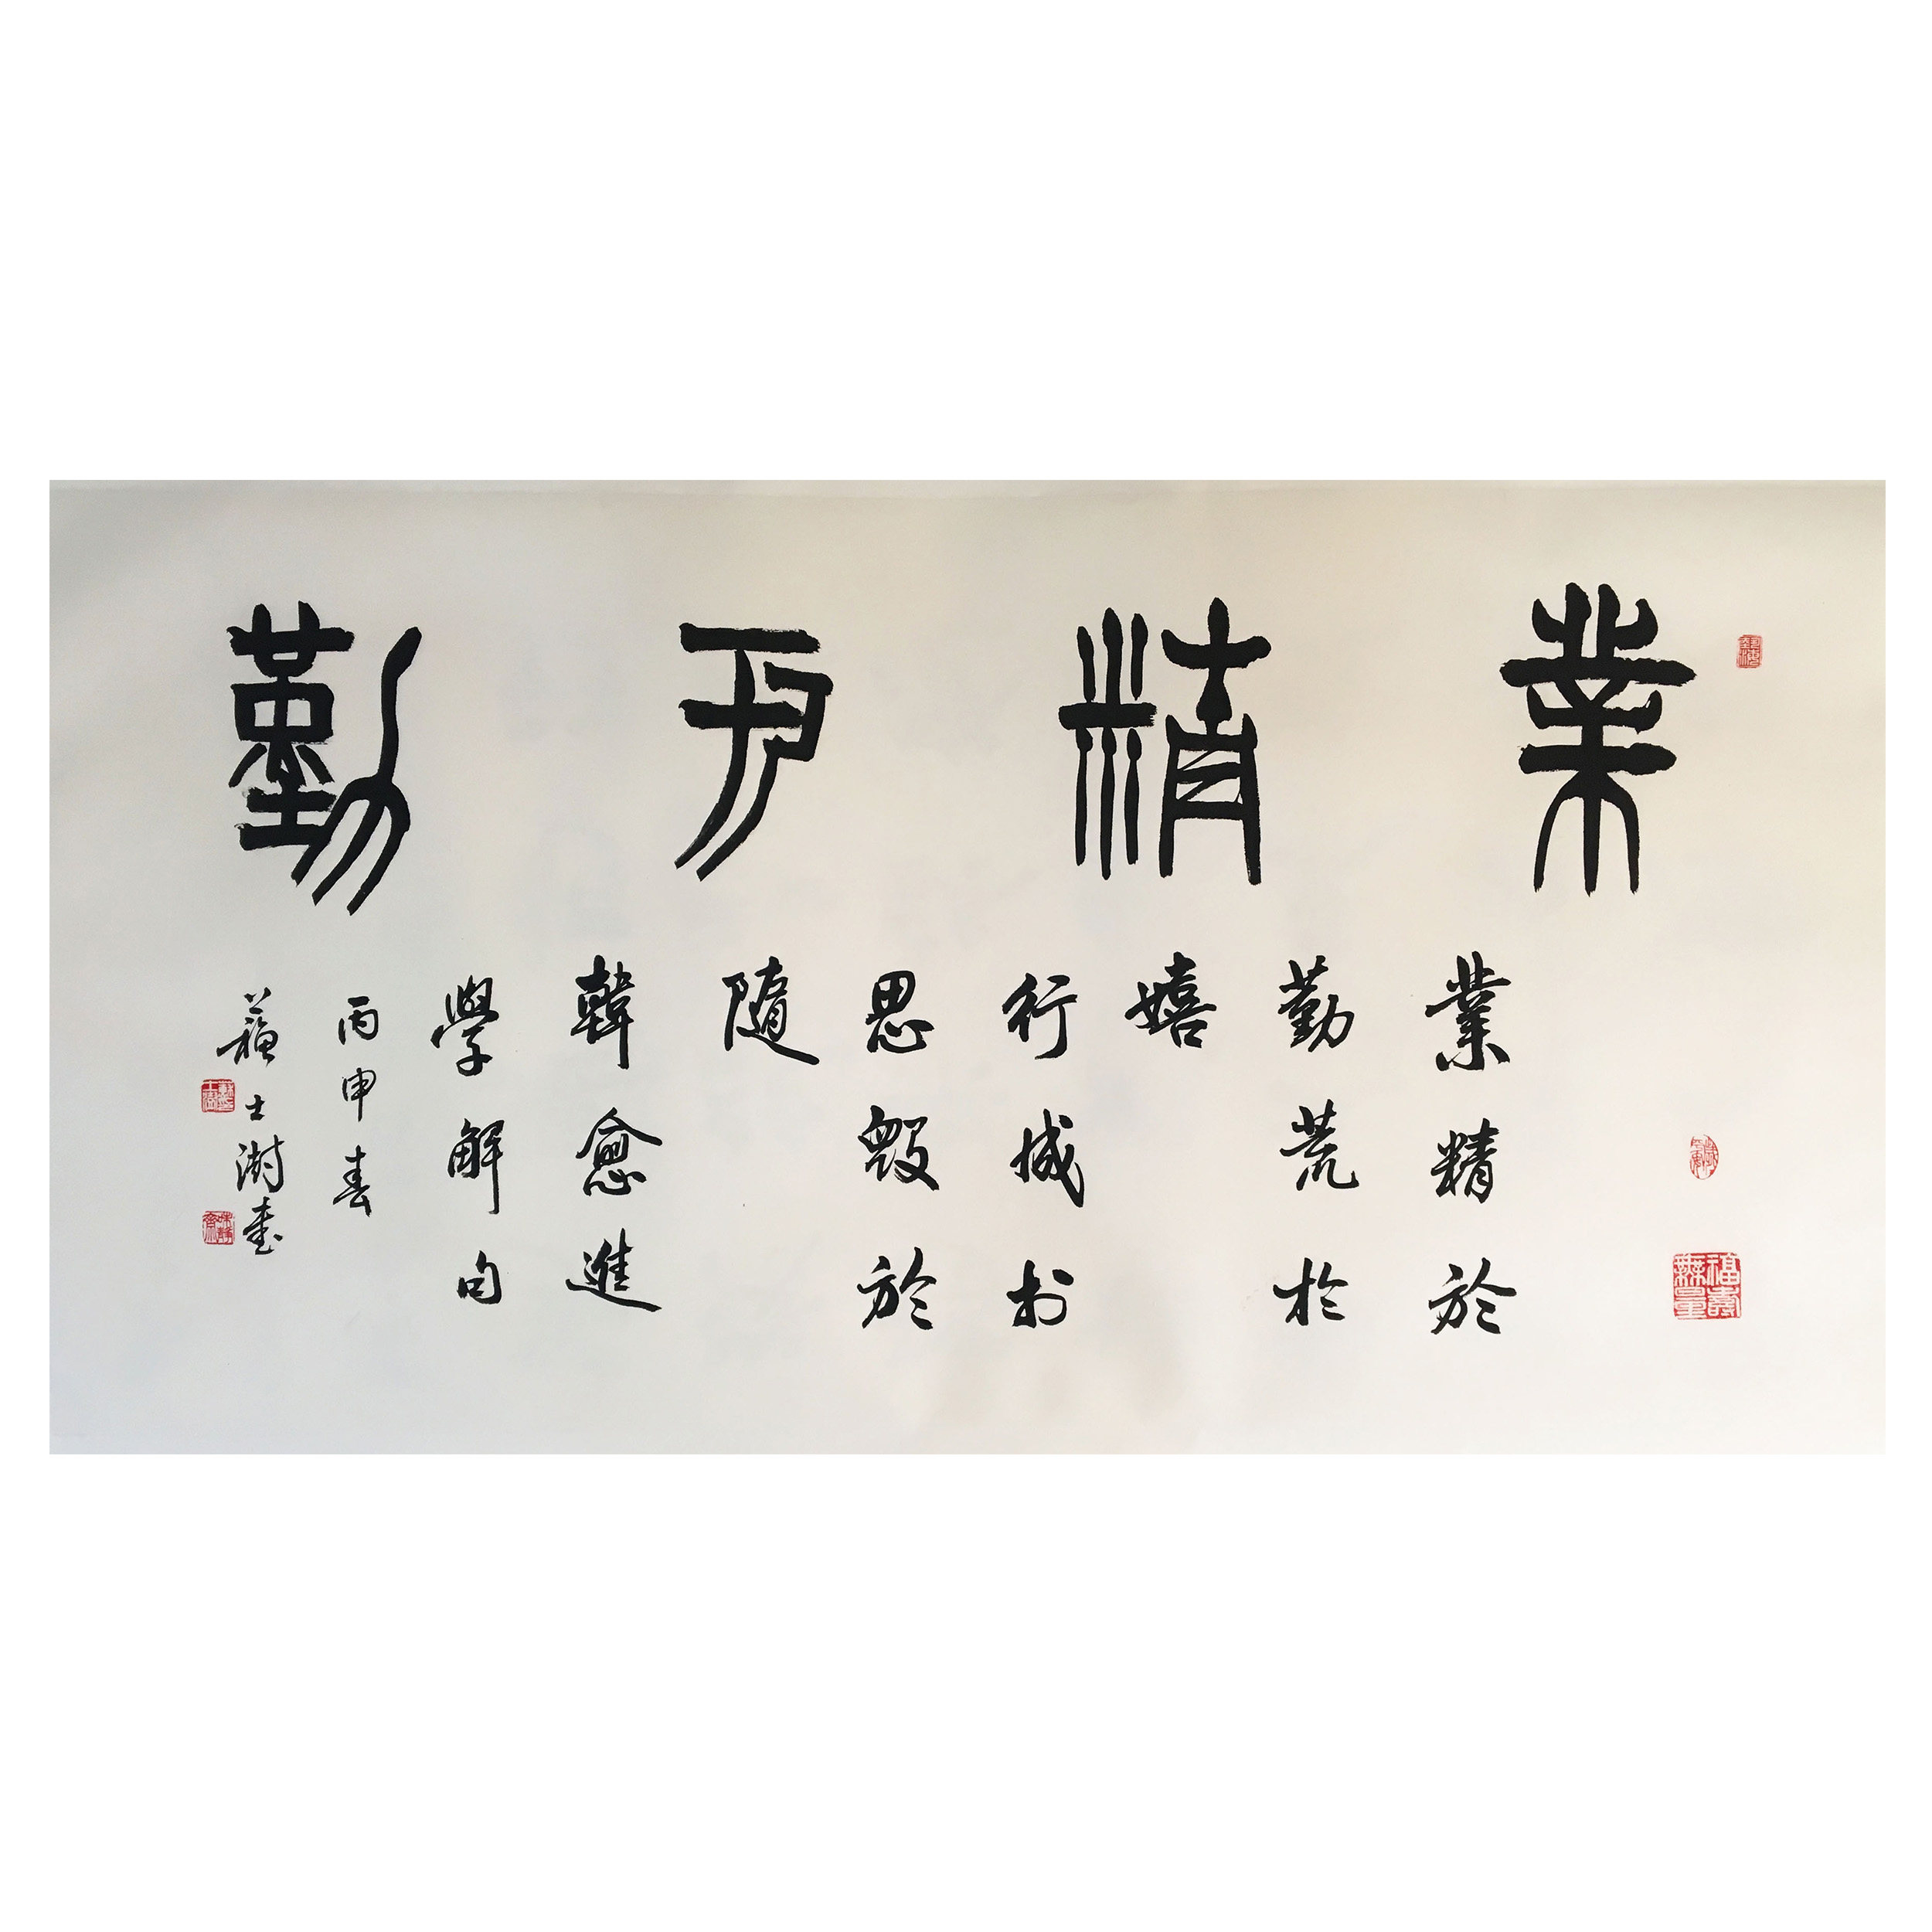 業精于勤
業精於
勤荒於
嬉
行成於
思毀於
隨
韓愈進
學解句
丙申春
蘇士澍書
福壽無量